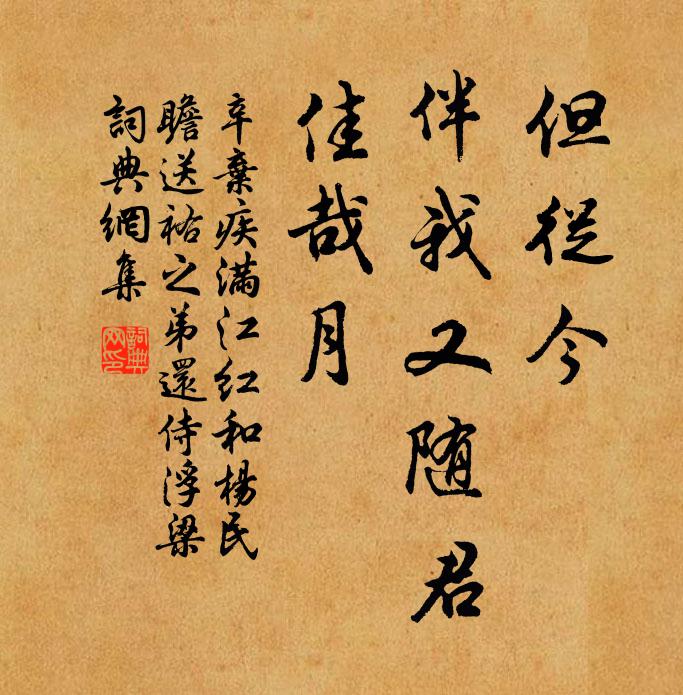 但從今
伴我又随君
佳哉月
辛棄疾滿江红和楊民
瞻送祐之弟還侍浮梁
詞典網集
詞典网印